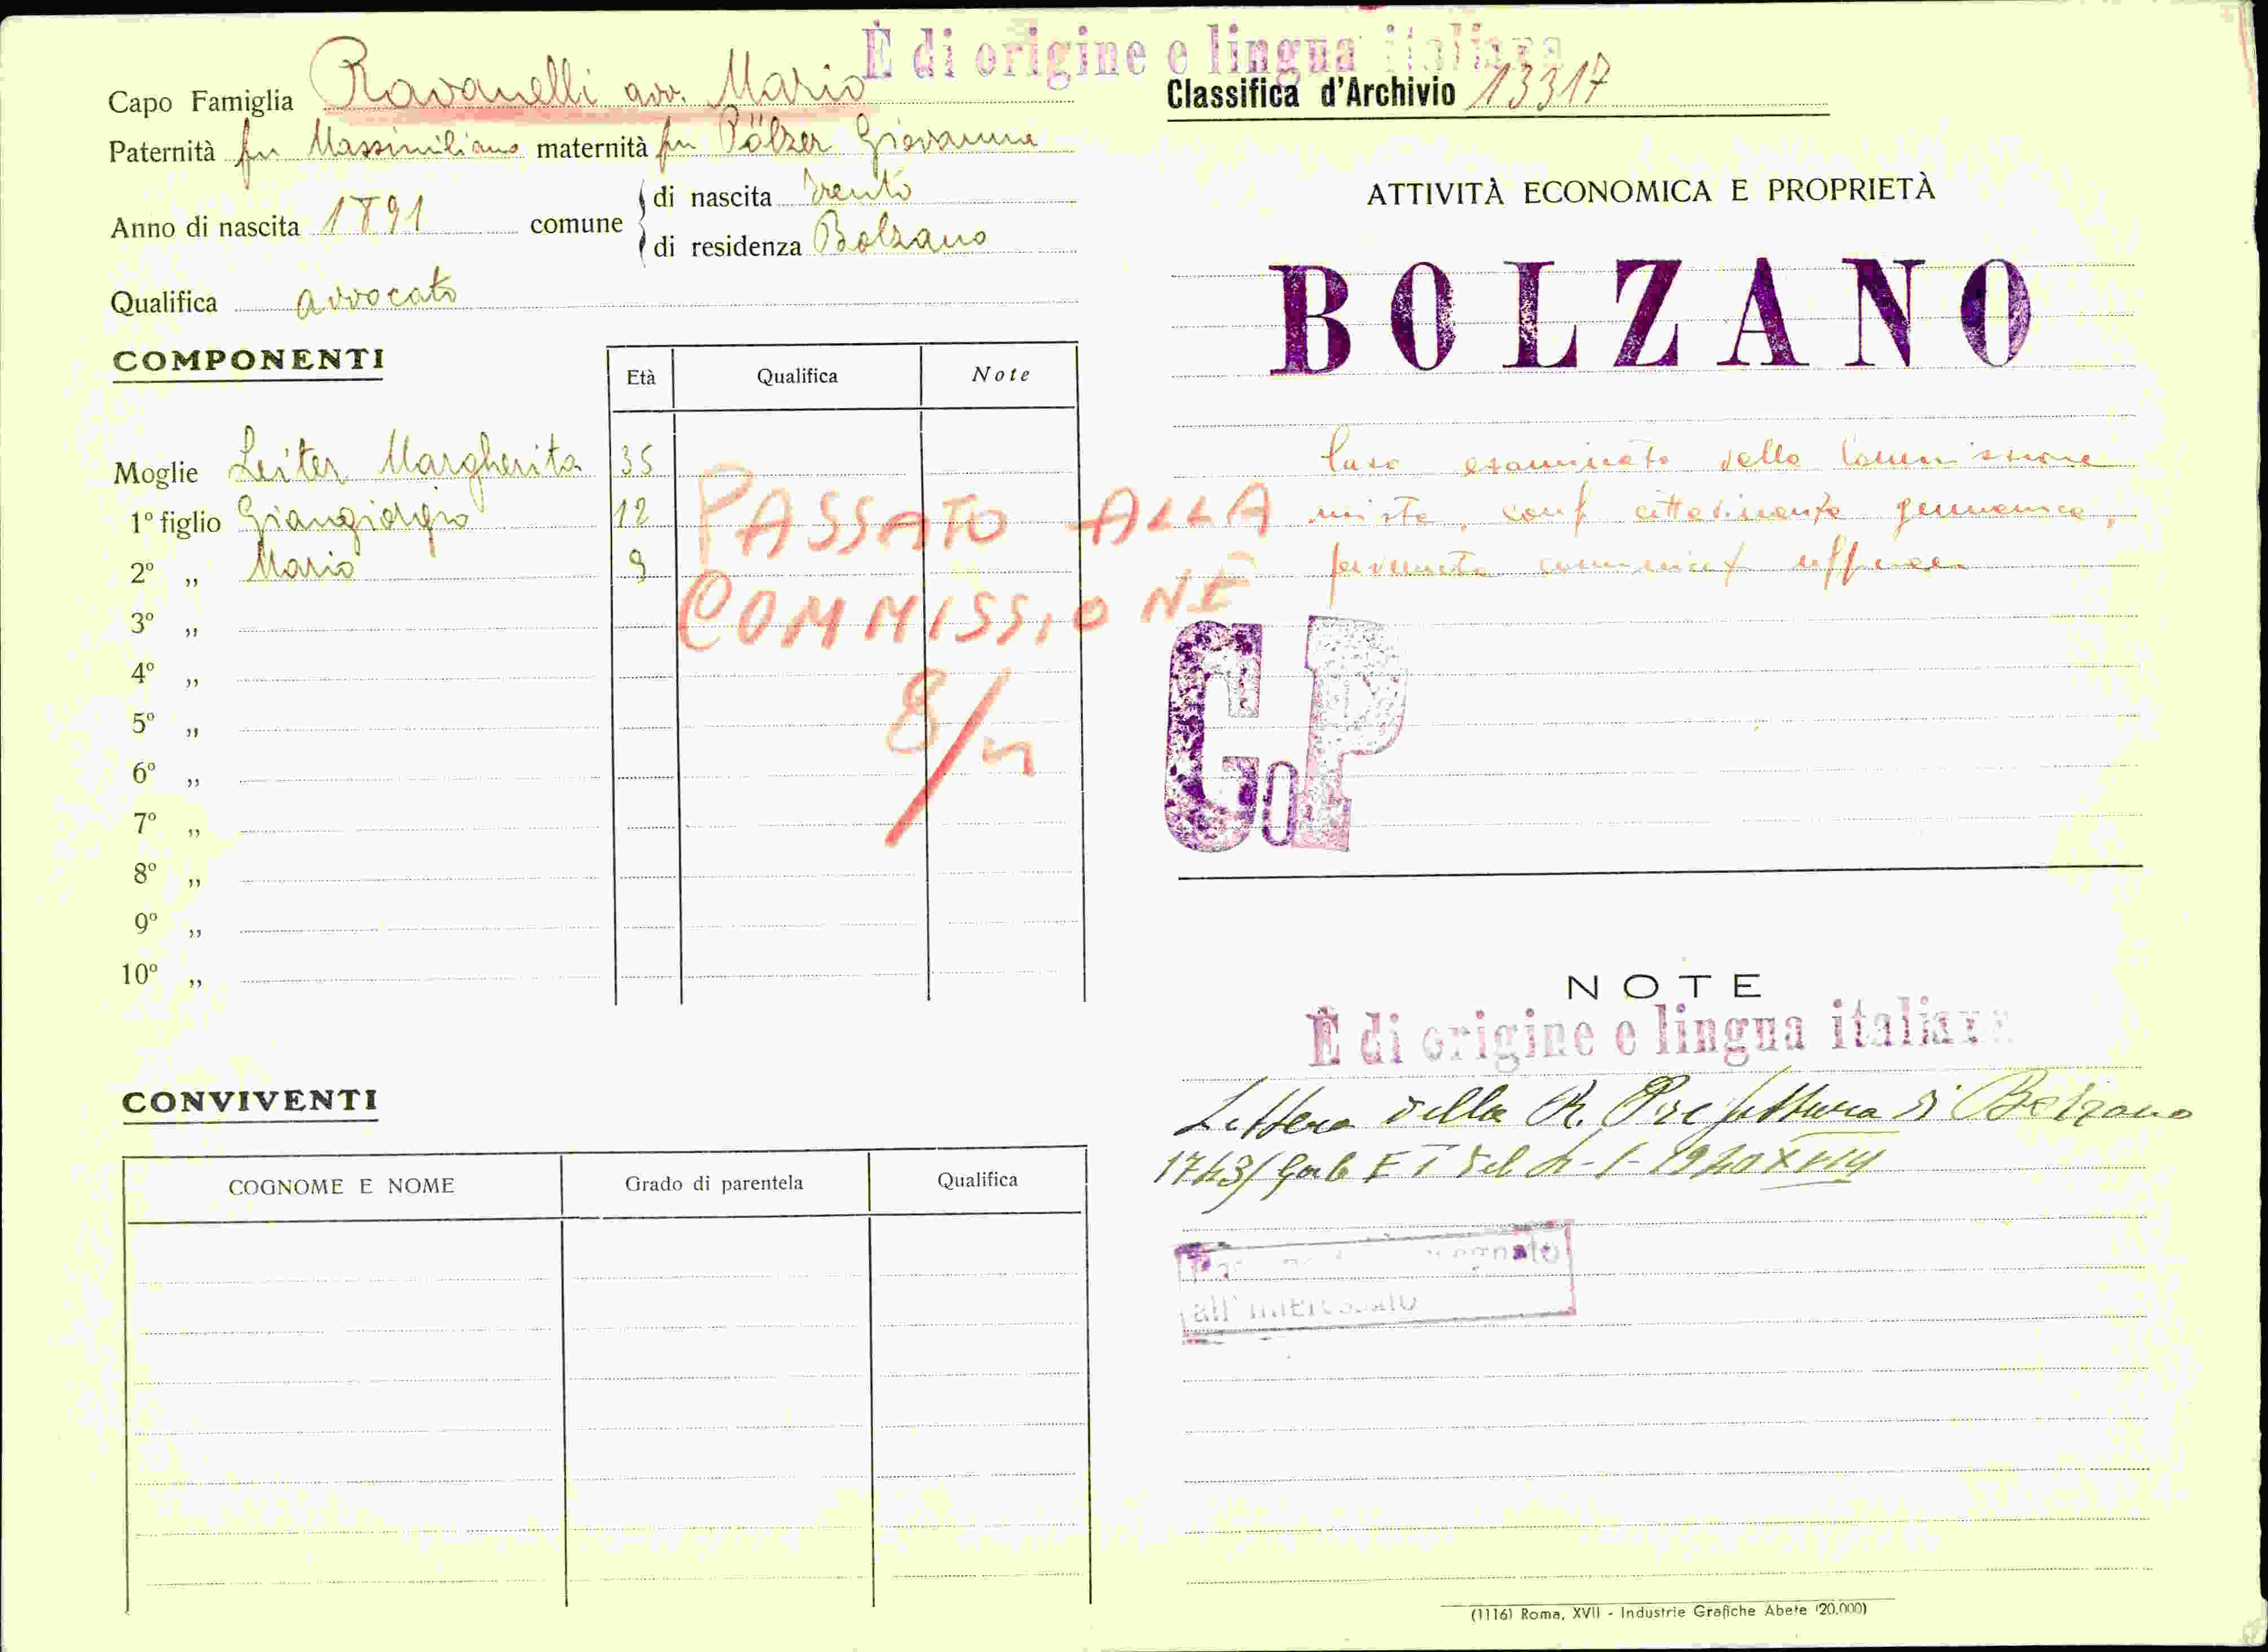 È di origine e lingua italiana
Capo Famiglia Ravanelli avv. Mario
Classifica d'Archivio 13317
Paternità fu Massimiliano maternità fu Pölzer Giovanna
Anno di nascita 1891 comune
di nascita Trento
di residenza Bolzano
Qualifica avvocato
COMPONENTI
Età Qualifica Note
Moglie Leiter Margherita 35
1º figlio Giangiorgio 12
2º ,, Mario 9
3º ,,
4º ,,
5º ,,
6º ,,
7º ,,
8º ,,
9º ,,
10º ,,
PASSATO ALLA
COMMISSIONE
8/
CONVIVENTI
COGNOME E NOME Grado di parentela Qualifica
ATTIVITÀ ECONOMICA E PROPRIETÀ
BOLZANO
Caso esaminato dalla Commissione
mista, conf cittadinanza germanica,
GoP
NOTE
È di origine e lingua italiana
Lettera della R. Prefettura di Bolzano
1743/Gab E I del 1940 XVIII
all'interessato
(1116) Roma, XVII - Industrie Grafiche Abete (20.000)